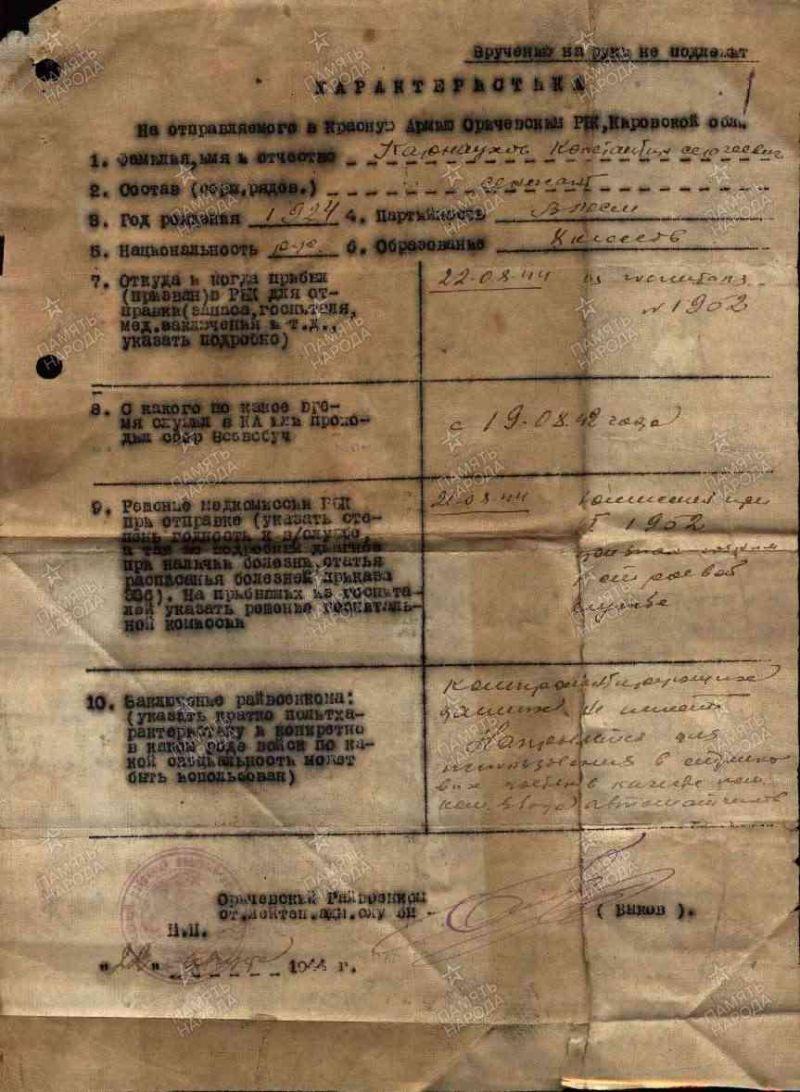 Вручению на руки не подлежит
ХАРАКТЕРИСТИКА
На отправляемого в Красную Армию Оричевским РВК, Кировской обл.
1. Фамилия, имя и отчество Константин Сергеевич
2. Состав (серж. рядов.) сержант
3. Год рождения 1924 4. Партийность
5. Национальность 6. Образование
7. Откуда и когда прибыл
(призван) в РВК для от-
правки (запаса, госпиталя,
мед. заключения и т.д.,
указать подробно)
22-08-44 из госпиталя
№ 1952
8. С какого по какое вре-
мя служил в КА или прохо-
дил сбор Всевобуч
с 19-08.42 года
9. Решение медкомиссии РВК
при отправке (указать сте-
пень годности к в/службе,
а так же подробный диагноз
при наличии болезни, статья
расписанья болезней приказа
). На прибывших из госпита-
лей указать решение госпиталь-
ной комиссии
21-08-44 комиссией при
1952
строевой
службе
10. Заключение райвоенкома:
(указать кратко политха-
рактеристику и конкретно
в каком роде войск по ка-
кой специальность может
быть использован)
Компрометирующих
данных не имеет
Направляется для
использования в
в качестве
автоматчиков
Оричевский Райвоенком
ст. лейтен. адм. службы - (Быков).
М.П.
1944 г.
ПАМЯТЬ НАРОДА